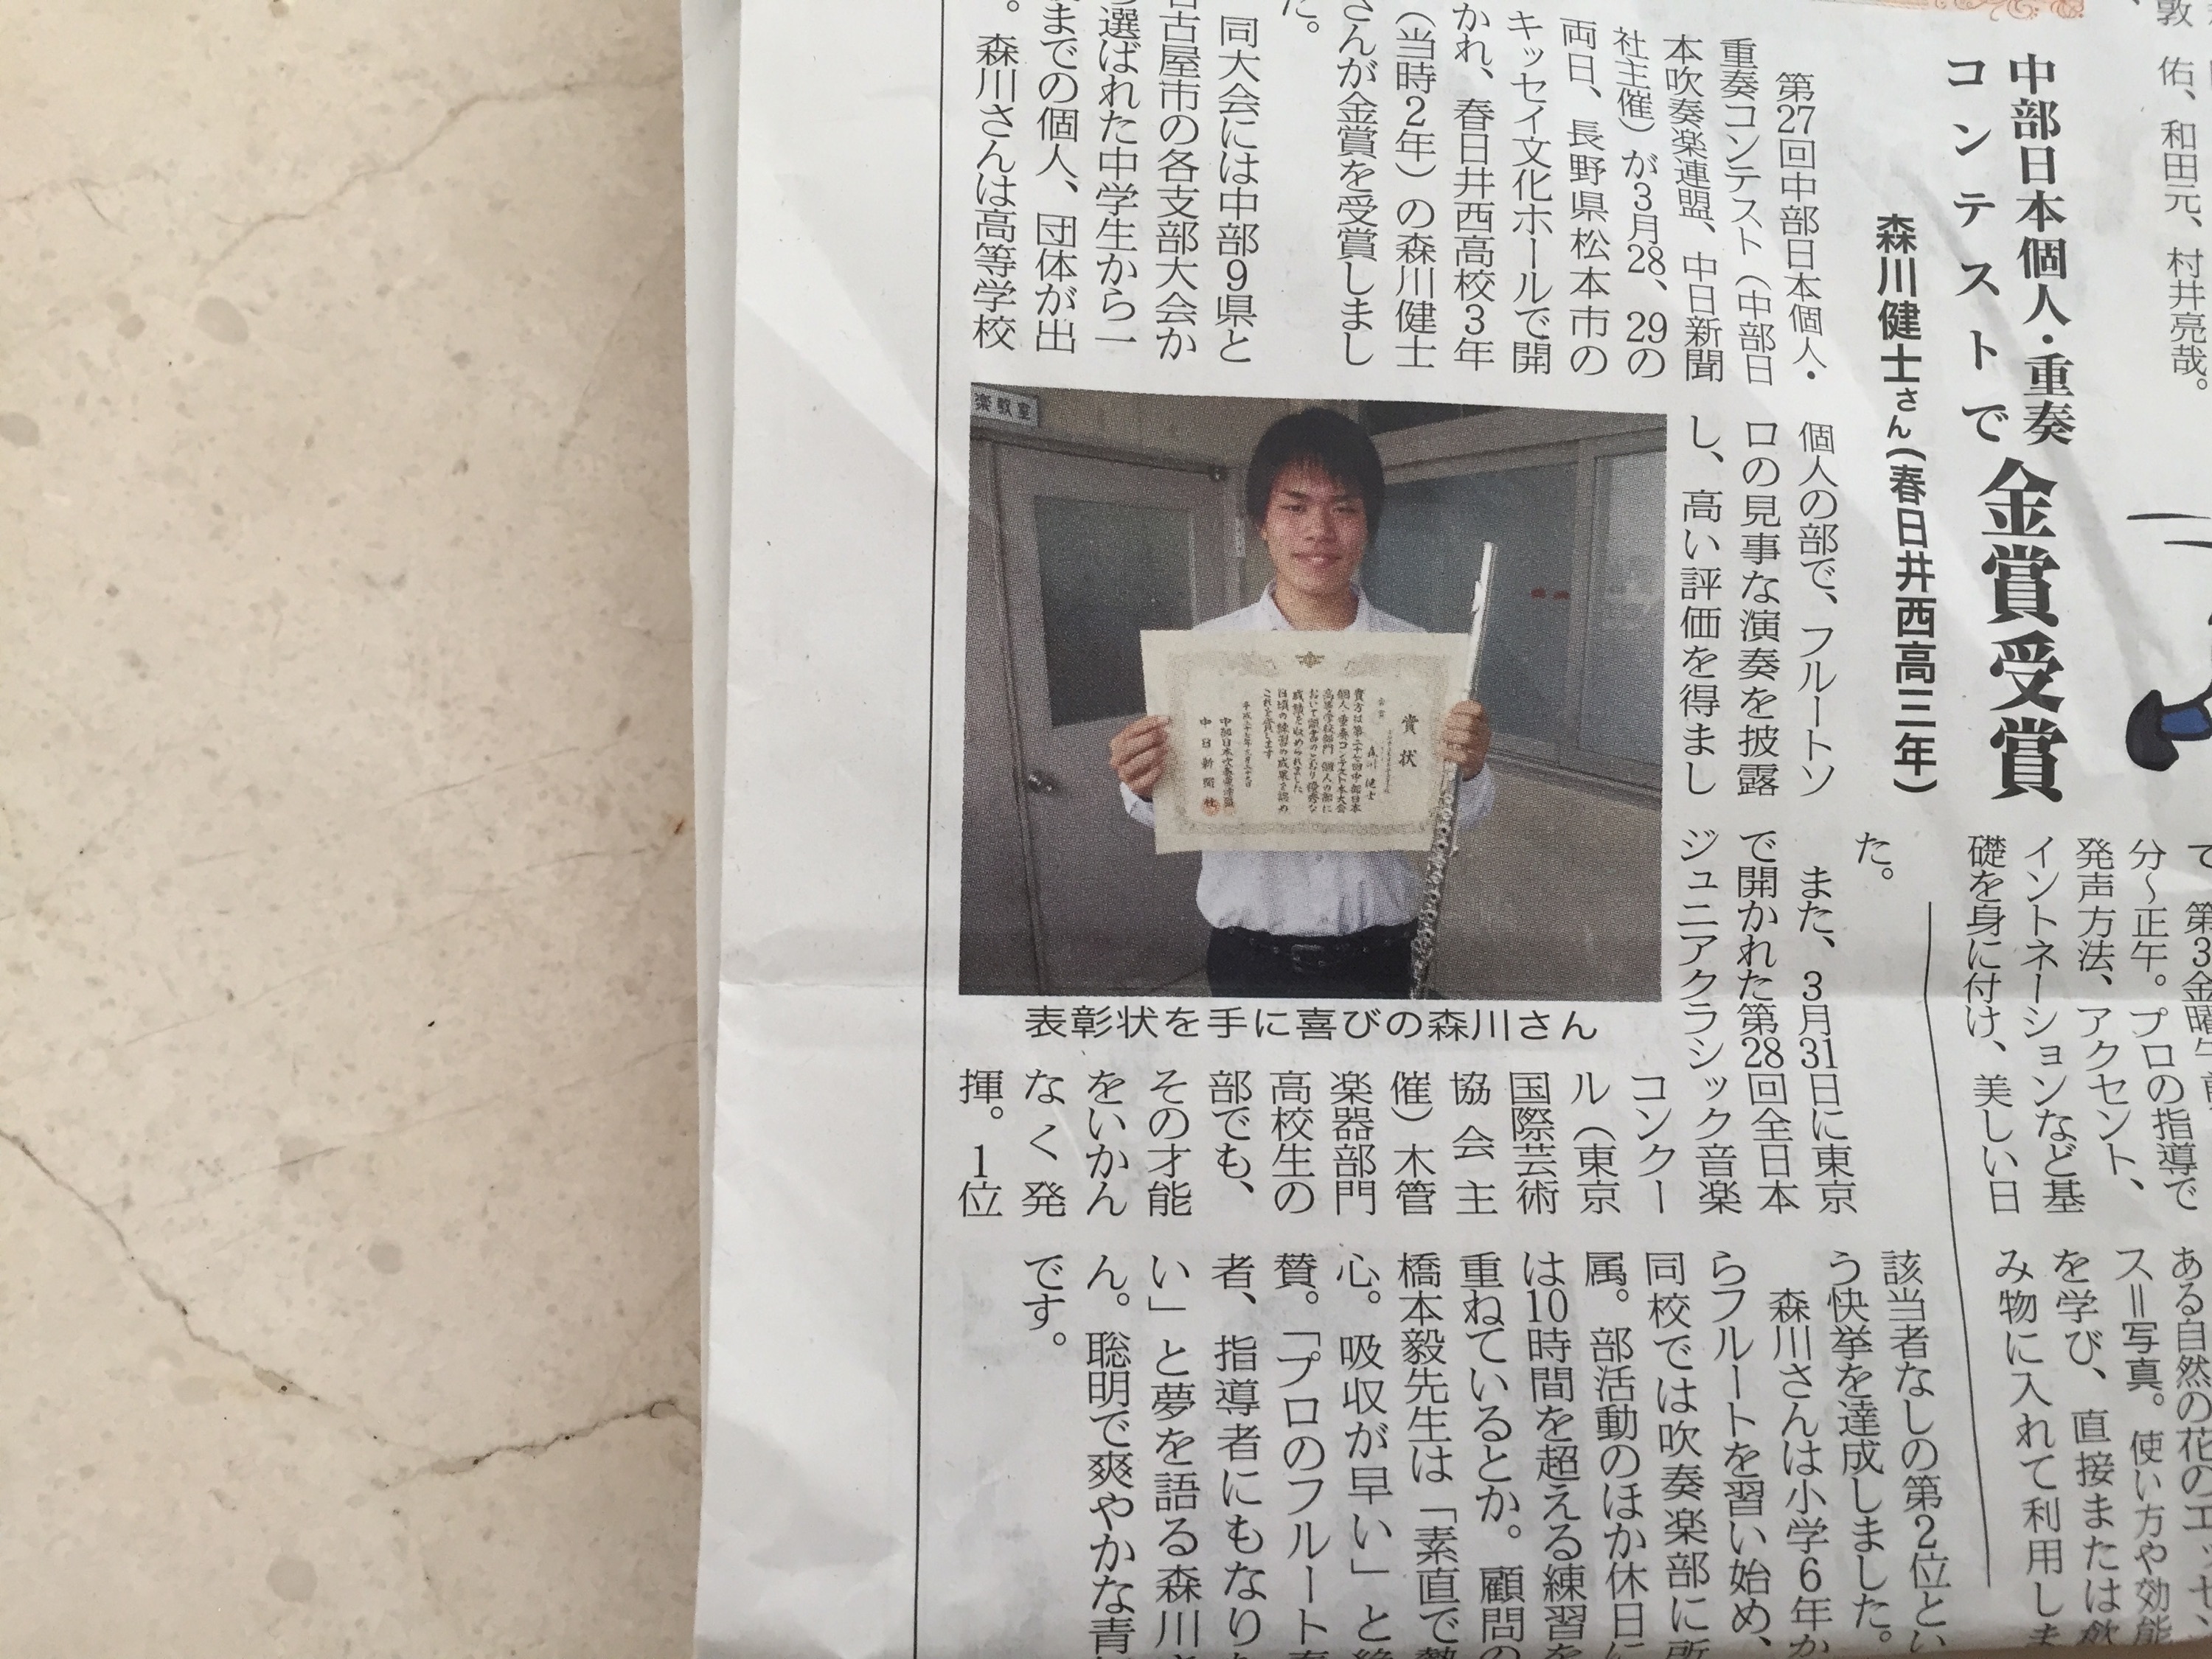 中部日本個人・重奏
コンテストで金賞受賞
森川健士さん(春日井西高三年)
第27回中部日本個人・
重奏コンテスト(中部日
本吹奏楽連盟、中日新聞
社主催)が3月28、29の
両日、長野県松本市の
キッセイ文化ホールで開
かれ、春日井西高校3年
(当時2年)の森川健士
さんが金賞を受賞しまし
た。
同大会には中部9県と
名古屋市の各支部大会か
選ばれた中学生から一
までの個人、団体が出
。森川さんは高等学校
個人の部で、フルートソ
ロの見事な演奏を披露
し、高い評価を得まし
た。
また、3月31日に東京
で開かれた第28回全日本
ジュニアクラシック音楽
コンクー
ル(東京
国際芸術
協会主
催)木管
楽器部門
高校生の
部でも、
その才能
をいかん
なく発
揮。1位
該当者なしの第2位とい
う快挙を達成しました。
森川さんは小学6年か
らフルートを習い始め、
同校では吹奏楽部に所
属。部活動のほか休日に
は10時間を超える練習を
重ねているとか。顧問の
橋本毅先生は「素直で熱
心。吸収が早い」と絶
賛。「プロのフルート奏
者、指導者にもなりた
い」と夢を語る森川さ
ん。聡明で爽やかな青
です。
表彰状を手に喜びの森川さん
楽教室
賞状
金賞
森川健士
貴方は第二十七回中部日本
個人・重奏コンテスト本大会
高等学校部門 個人の部に
おいて頭書のとおり優秀な
成績を収められました
日頃の練習の成果を認め
これを賞します
中部日本吹奏楽連盟
中日新聞社
敦
佑、和田元、村井亮哉。
第3金曜午前
分~正午。プロの指導で
発声方法、アクセント、
イントネーションなど基
礎を身に付け、美しい日
ある自然の花のエッセン
ス=写真。使い方や効能
を学び、直接または飲
み物に入れて利用しま